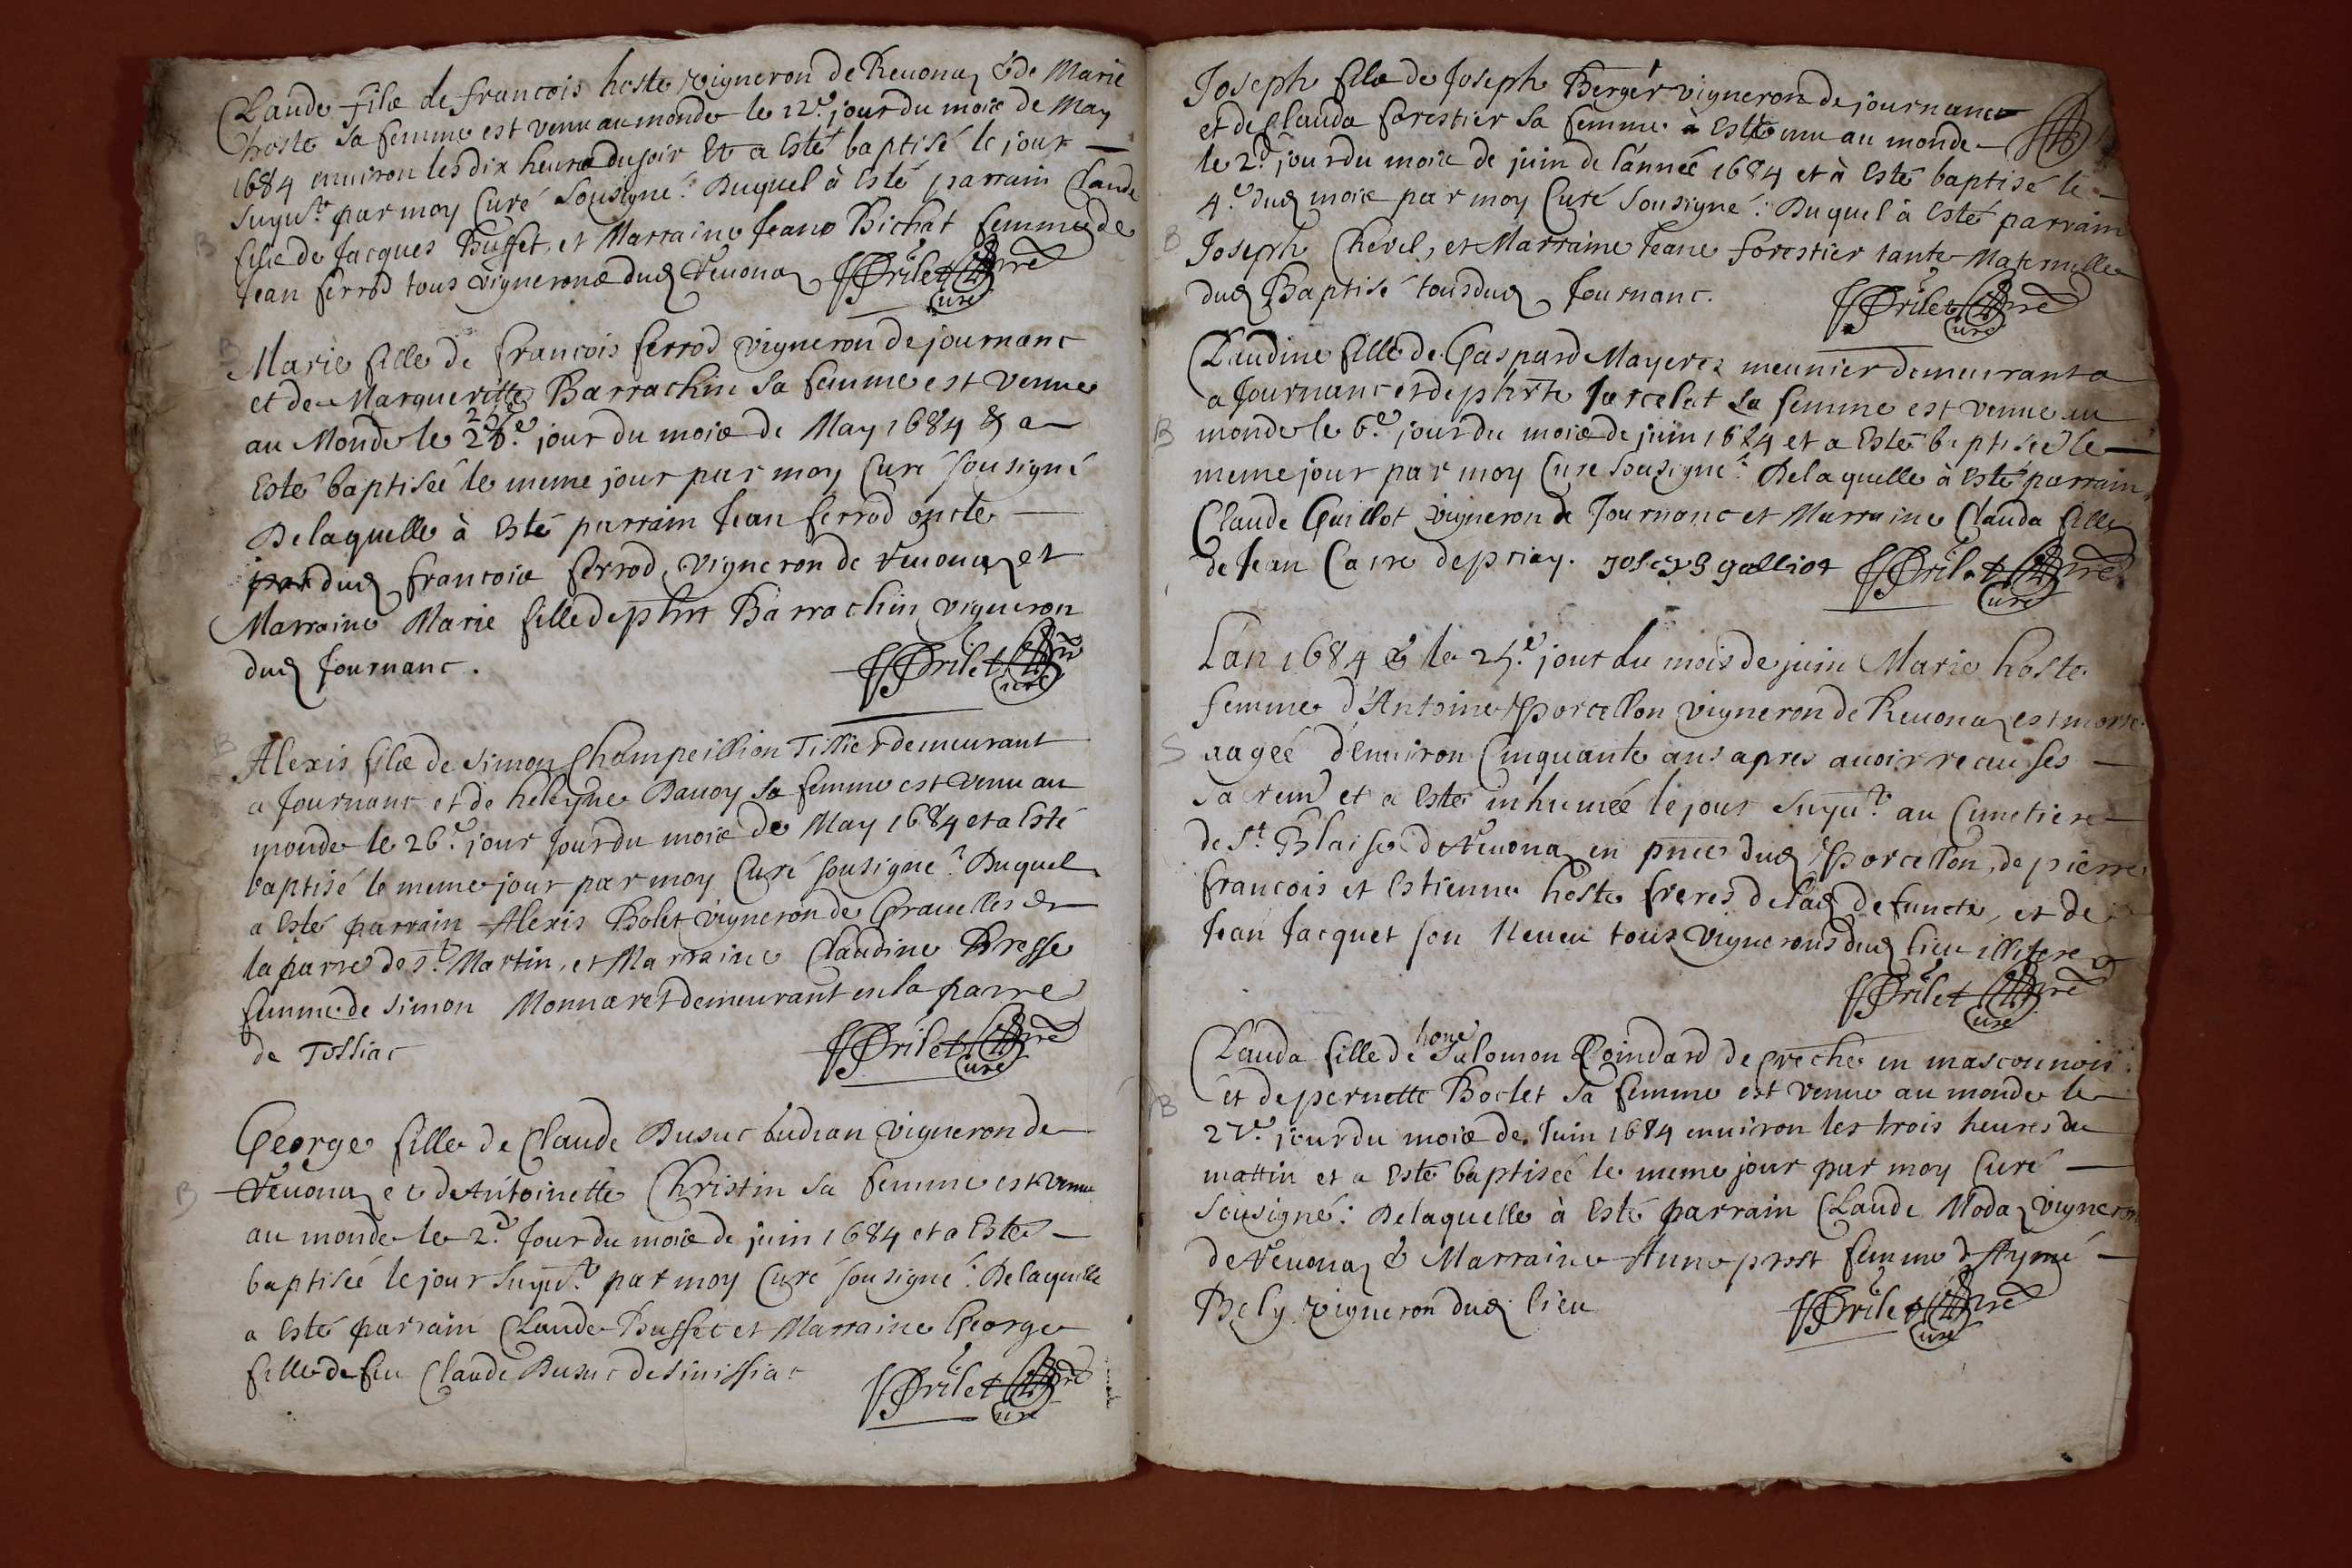 Claude filz de francois hoste vigneron de Reuonaz & de Marie
hoste sa femme est venu au monde le 12.e jour du mois de May
1684 enuiron les dix heures du soir Et a Esté baptisé le jour
suyu.t par moy Curé sousigné: Duquel à Esté parrain Claude
filz de Jacques Buffet, et Marraine Jeane Bichat femme de
Jean ferrod tous vignerons dud Reuonaz JPrilet pre
Curé
Marie fille de francois ferrod vigneron de journanc
et de Margueritte Barrachin sa femme est venue
25e
au Monde le jour du mois de May 1684 & a
Esté baptiseé le meme jour par moy Curé sousigné
Delaquelle à Esté parrain Jean ferrod oncle
dud francois ferrod, vigneron de Reuonaz et
Marraine Marie fille de phrt Barrachin vigneron
dud Journanc. JPrilet pre
Curé
Alexis filz de Simon Champeillion Tissier demeurant
a Journanc et de heleyne Dauoy sa femme est venu au
monde le 26.e jour Jour du mois de May 1684 et a Esté
baptisé le meme jour par moy Curé sousigné: Duquel
a Esté parrain Alexis Bolet vigneron de Grauelles de
la parre de s.t Martin, et Marraine Claudine Bresse
femme de Simon Monnaret demeurant en la parre
de Tossiac JPrilet pre
Curé
George fille de Claude Dusuc vigneron de
Reuonaz et de Antoinette Christin sa femme est venue
au monde le 2.e Jour du mois de juin 1684 et a Esté
baptiseé le jour suyu.t par moy Curé sousigné: Delaquelle
a Esté parrain Claude Buffet et Marraine George
fille de feu Claude Dusuc de Simissiac JPrilet pre
Curé
Joseph filz de Joseph Berger vigneron de journanc
et de Clauda forestier sa femme à Esté venu au monde
le 2.d jour du mois de juin de l'année 1684 et à Esté baptisé le
4.e dud mois par moy Curé sousigné: Duquel à Esté parrain
Joseph Chevel, et Marraine Jeane forestier tante Maternelle
dud Baptisé tous dud Journanc. JPrilet pre
Curé
Claudine fille de Gaspard Mayeres meunier demeurant
a Journanc et de phrte Jarcelat sa femme est venue au
monde le 6.e jour du mois de juin 1684 et a Esté baptiseé le
meme jour par moy Curé sousigné: Delaquelle à Esté parrain
Claude Guillot vigneron de Journanc et Marraine Clauda fille
de Jean Carre de priay. galliot JPrilet pre
Curé
L'an 1684 & le 25.e jour du mois de juin Marie hoste
femme d'Antoine Porcellon vigneron de Reuonaz est morte
aageé d'Enuiron Cinquante ans apres auoir receu ses
sa et a Esté inhumeé le jour suyu.t au Cimetiere
de S.t Blaise de Reuonaz en pnce dud Porcellon, de pierre
francois et Estienne hoste freres de lad defuncte, et de
Jean Jacquet son Neueu tous vignerons dud lieu illiterez
JPrilet pre
Curé
hone
Clauda fille de Salomon Poindard de Creche en masconnois
et de pernette Boclet sa femme est venue au monde le
27.e jour du mois de Juin 1684 enuiron les trois heures du
mattin et a Esté baptiseé le meme jour par moy Curé
sousigné: Delaquelle à Esté parrain Claude Modaz vigneron
de Reuonaz & Marraine Anne prost femme d'Aymé
Bely vigneron dud lieu JPrilet pre
Curé